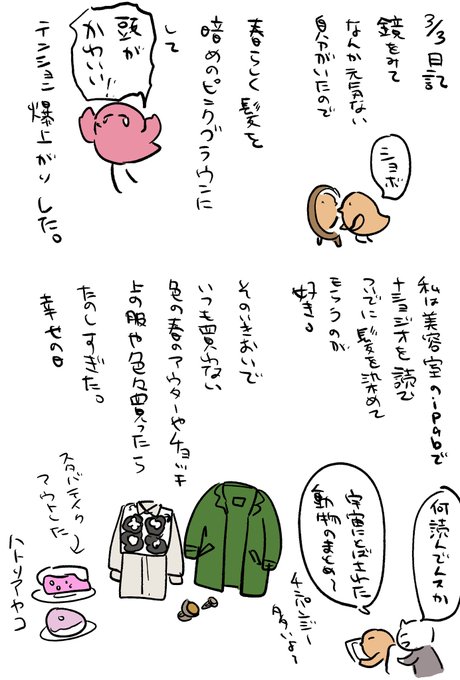 3/3日記
鏡をみて
なんか元気ない
自分がいたので
ショボ
春らしく髪を
暗めのピンクブラウンに
して
頭が
かわいい!!
テンション爆上がりした。
私は美容室のipabで
ナショジオを読む
ついでに髪を染めて
もらうのが
好き。
何読んでんスか
宇宙にとばされた
動物のまとめ〜
チンパンジー
多いよ〜
そのいきおいで
いつも買わない
色の春のアウターやチョッキ
上の服や色々買ったら
たのしすぎた。
幸せの日
スタバでテイク
アウトした
ハトリアヤコ